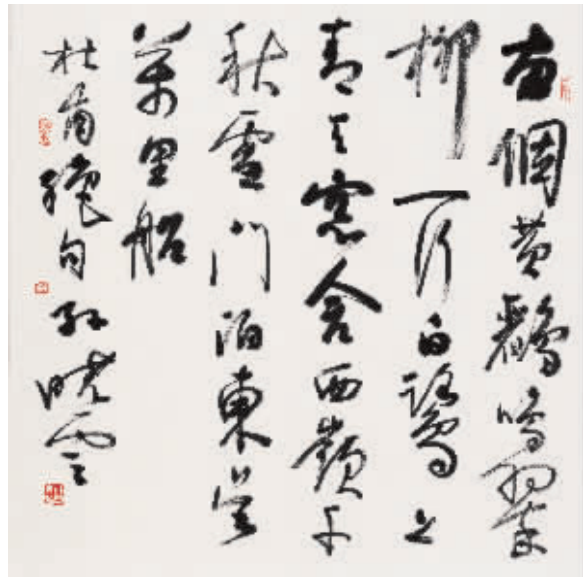 兩個黄鸝鳴翠
柳一行白鷺上
青天窓含西嶺千
秋雪門泊東吴
萬里船
杜甫絶句孫曉雲